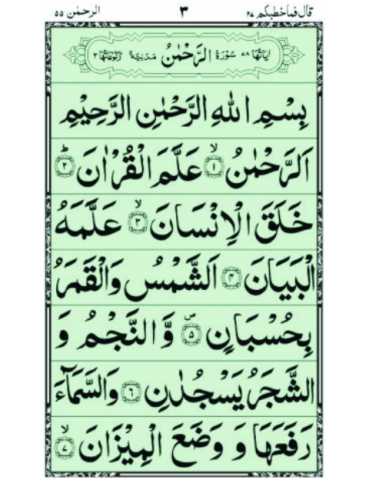 قال فما خطبكم ٢٧ ٣ الرحمٰن ٥٥
اٰيَاتُهَا ٧٨ سُوْرَةُ الرَّحْمٰنُ مَدَنِيَّةٌ رُكُوْعَاتُهَا ٣
بِسْمِ اللهِ الرَّحْمٰنِ الرَّحِيْمِ
اَلرَّحْمٰنُ ۙ‏﴿١﴾ عَلَّمَ الْقُرْاٰنَ ؕ‏﴿٢﴾
خَلَقَ الْاِنْسَانَ ۙ‏﴿٣﴾ عَلَّمَهُ
الْبَيَانَ ﴿٤﴾ اَلشَّمْسُ وَالْقَمَرُ
بِحُسْبَانٍ ۪‏﴿٥﴾ وَّ النَّجْمُ وَ
الشَّجَرُ يَسْجُدٰنِ ﴿٦﴾ وَالسَّمَآءَ
رَفَعَهَا وَ وَضَعَ الْمِيْزَانَ ۙ‏﴿٧﴾